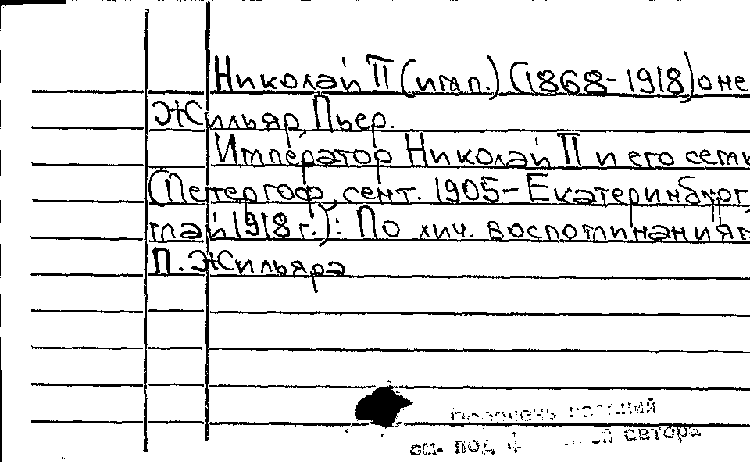 Николай II (имп.) (1868-1918) о не
Жильяр, Пьер.
Император Николай II и его семь
(Петергоф, сент. 1905-Екатеринбург,
май 1918 г.): По лич. воспоминаниям
П. Жильяра
см. под ф автора